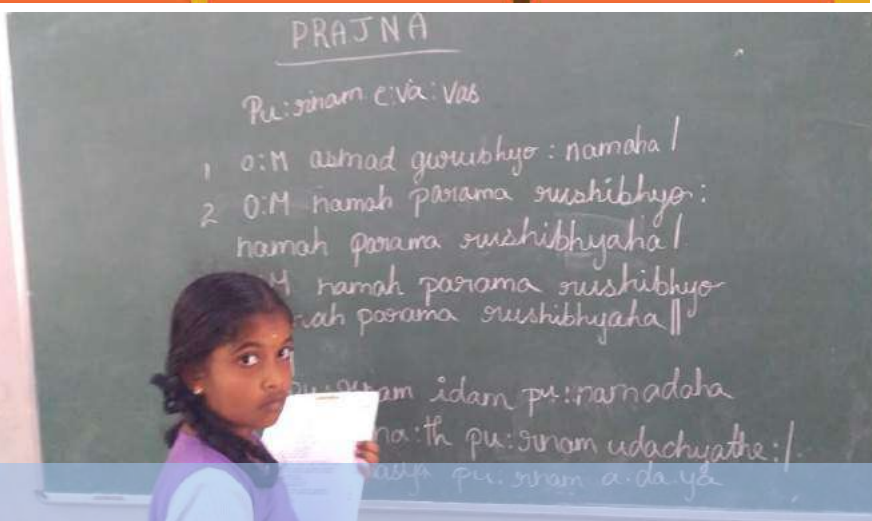 PRAJNA
Pu:rinam e:va:vas
1 O:M asmad gurubhyo: namaha |
2 O:M namah parama rushibhyo:
namah parama rushibhyaha |
M namah parama rushibhyo
mah parama rushibhyaha ||
idam pu:rnamadaha
na:th pu:rinam udachyathe: |
asya pu:rinam a:da:ya